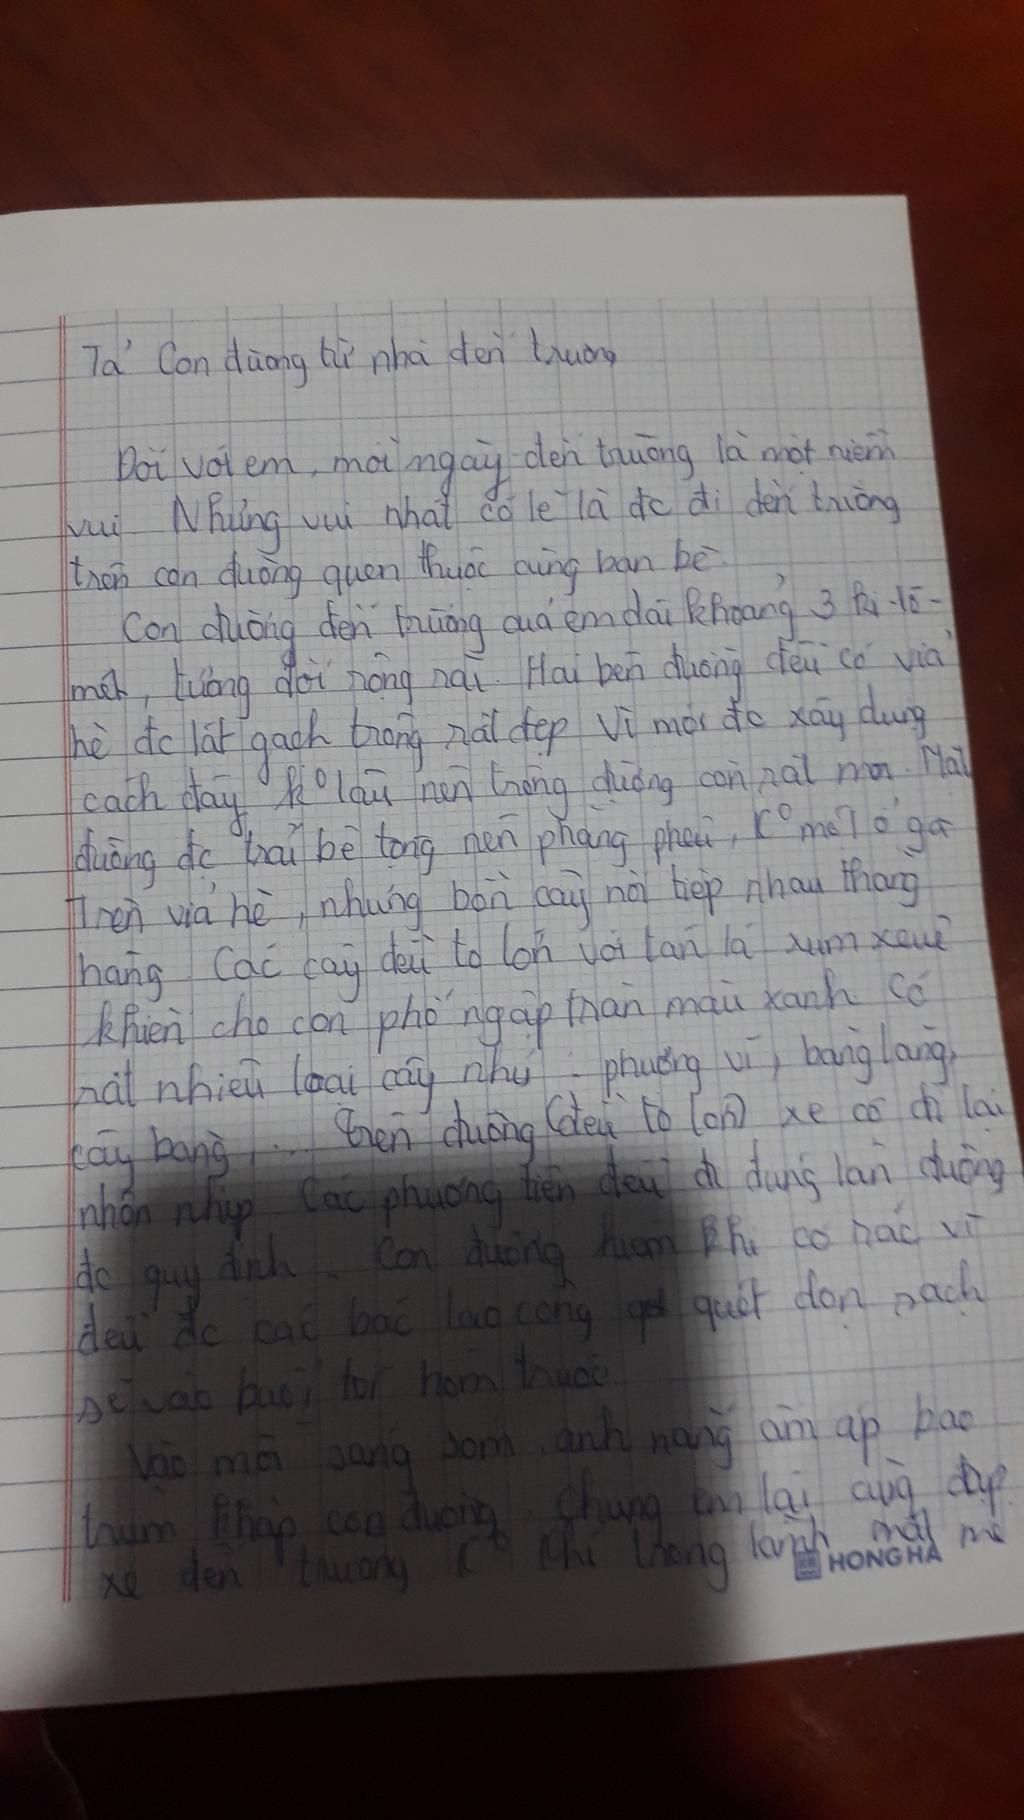 Tả Con đường từ nhà đến trường
Đối với em, mỗi ngày đến trường là một niềm
vui Nhưng vui nhất có lẽ là đc đi đến trường
trên con đường quen thuộc cùng bạn bè.
Con đường đến trường của em dài khoảng 3 ki-lô-
mét, tương đối rộng rãi. Hai bên đường đều có vỉa
hè đc lát gạch trông rất đẹp Vì mới đc xây dựng
cách đây k° lâu nên trông đường còn rất mới. Mặt
đường đc trải bê tông nên phẳng phiu, k° mấp ô gà
Trên vỉa hè, những bồn cây nối tiếp nhau thẳng
hàng. Các cây đều to lớn với tán lá xum xuê
khiến cho con phố ngập tràn màu xanh Có
rất nhiều loại cây như: phượng vĩ, bằng lăng,
cây bàng, ... trên đường (đều to lớn) xe cộ đi lại
nhộn nhịp Các phương tiện đều đi đúng làn đường
đc quy định. Con đường hiếm khi có rác vì
đều đc các bác lao công quét dọn sạch
sẽ vào buổi tối hôm trước
Vào mỗi sáng sớm, ánh nắng ấm áp bao
trùm khắp con đường. Chúng em lại cùng đạp
xe đến trường. k° khí trong lành mát mẻ
HONG HA